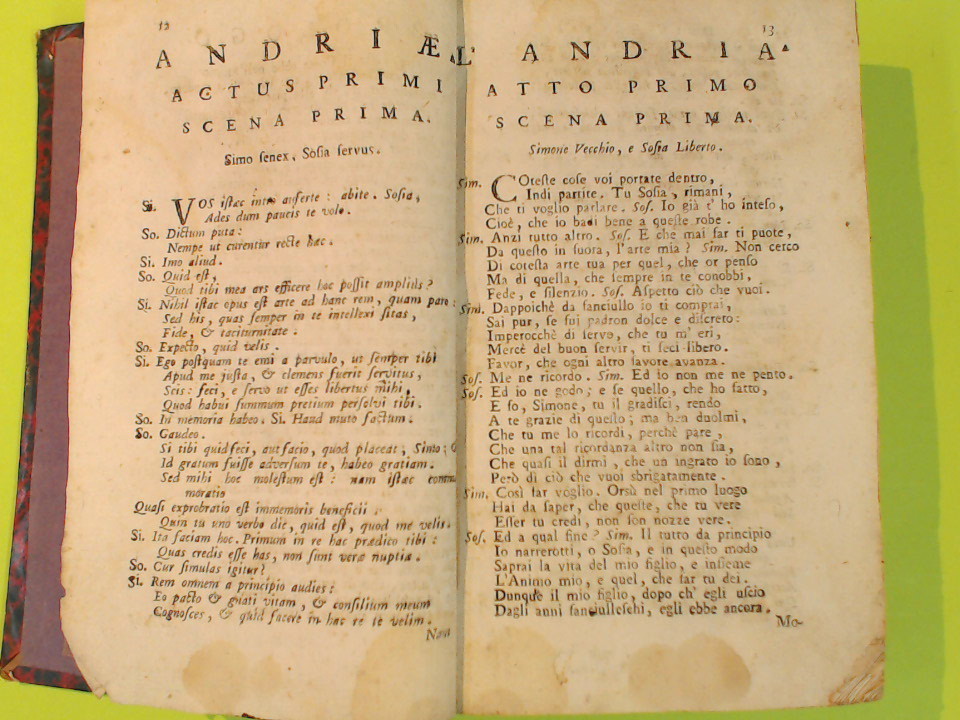 12
ANDRIÆ
ACTUS PRIMI
SCENA PRIMA.
Simo senex, Sosia servus.
Si. VOS istæc intro auferte: abite. Sosia,
Ades dum paucis te volo.
So. Dictum puta:
Nempe ut curentur recte hæc.
Si. Imo aliud.
So. Quid est,
Quod tibi mea ars efficere hoc possit amplius?
Si. Nihil istac opus est arte ad hanc rem, quam paro:
Sed his, quas semper in te intellexi sitas,
Fide, & taciturnitate.
So. Expecto, quid velis.
Si. Ego postquam te emi a parvulo, ut semper tibi
Apud me justa, & clemens fuerit servitus,
Scis: feci, e servo ut esses libertus mihi,
Quod habui summum pretium persolvi tibi.
So. In memoria habeo. Si. Haud muto factum.
So. Gaudeo.
Si tibi quid feci, aut facio, quod placeat, Simo;
Id gratum fuisse adversum te, habeo gratiam.
Sed mihi hoc molestum est: nam istæc comme
moratio
Quasi exprobratio est immemoris beneficii.
Quin tu uno verbo dic, quid est, quod me velis.
Si. Ita faciam hoc. Primum in re hac prædico tibi:
Quas credis esse has, non sunt veræ nuptiæ.
So. Cur simulas igitur?
Si. Rem omnem a principio audies:
Eo pacto & gnati vitam, & consilium meum
Cognosces, & quid facere in hac re te velim.
Nam
13
L'ANDRIA.
ATTO PRIMO
SCENA PRIMA.
Simone Vecchio, e Sosia Liberto.
Sim. COteste cose voi portate dentro,
Indi partite. Tu Sosia, rimani,
Che ti voglio parlare. Sos. Io già t' ho inteso,
Cioè, che io badi bene a queste robe.
Sim. Anzi tutto altro. Sos. E che mai far ti puote,
Da questo in fuora, l'arte mia? Sim. Non cerco
Di cotesta arte tua per quel, che or penso
Ma di quella, che sempre in te conobbi,
Fede, e silenzio. Sos. Aspetto ciò che vuoi.
Sim. Dappoichè da fanciullo io ti comprai,
Sai pur, se fui padron dolce e discreto:
Imperocchè di servo, che tu m' eri,
Mercè del buon servir, ti feci libero.
Favor, che ogni altro favore avanza.
Sos. Me ne ricordo. Sim. Ed io non me ne pento.
Sos. Ed io ne godo; e se quello, che ho fatto,
E fo, Simone, tu il gradisci, rendo
A te grazie di questo; ma ben duolmi,
Che tu me lo ricordi, perchè pare,
Che una tal ricordanza altro non sia,
Che quasi il dirmi, che un ingrato io sono,
Però di ciò che vuoi sbrigatamente.
Sim. Così far voglio. Orsù nel primo luogo
Hai da saper, che queste, che tu vere
Esser tu credi, non son nozze vere.
Sos. Ed a qual fine? Sim. Il tutto da principio
Io narrerotti, o Sosia, e in questo modo
Saprai la vita del mio figlio, e insieme
L'Animo mio, e quel, che far tu dei.
Dunque il mio figlio, dopo ch' egli uscio
Dagli anni fanciulleschi, egli ebbe ancora.
Mo-